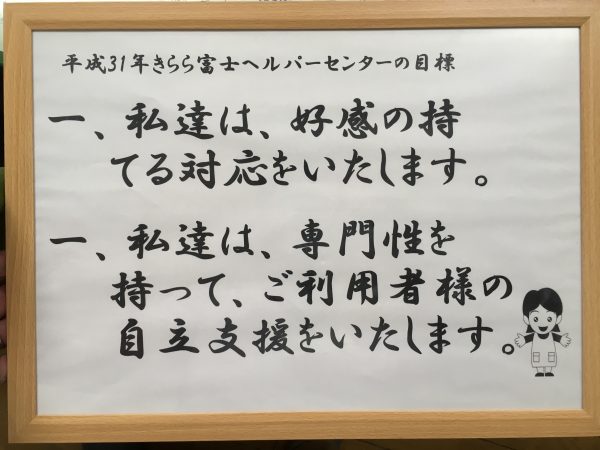 平成31年きらら富士ヘルパーセンターの目標
一、私達は、好感の持
てる対応をいたします。
一、私達は、専門性を
持って、ご利用者様の
自立支援をいたします。